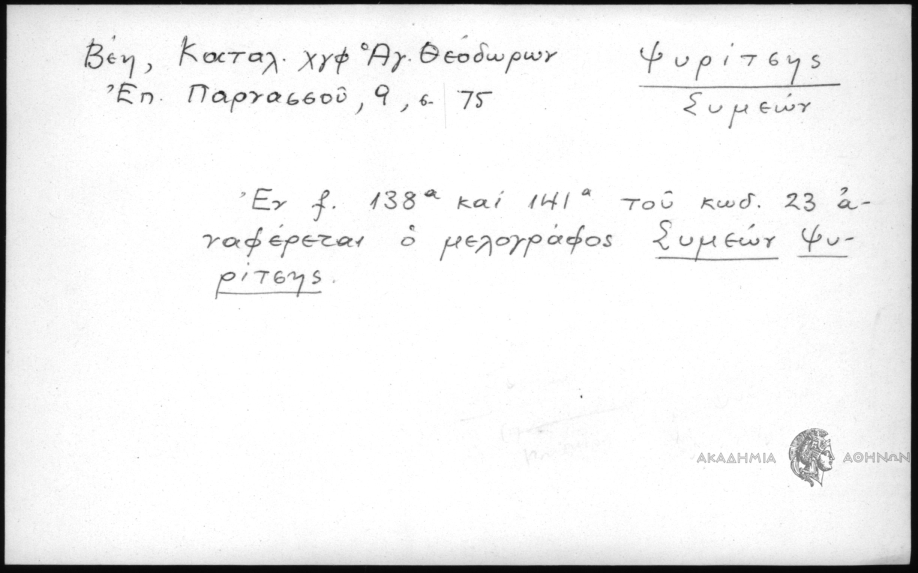 Βέη, Καταλ. χγφ Ἁγ. Θεόδωρων
Ἐπ. Παρνασσοῦ, 9, σ. 75
Ψυρίτσης
Συμεών
Ἐν f. 138ᵃ καί 141ᵃ τοῦ κωδ. 23 ἀ-
ναφέρεται ὁ μελογράφος Συμεών Ψυ-
ρίτσης.
ΑΚΑΔΗΜΙΑ ΑΘΗΝΩΝ